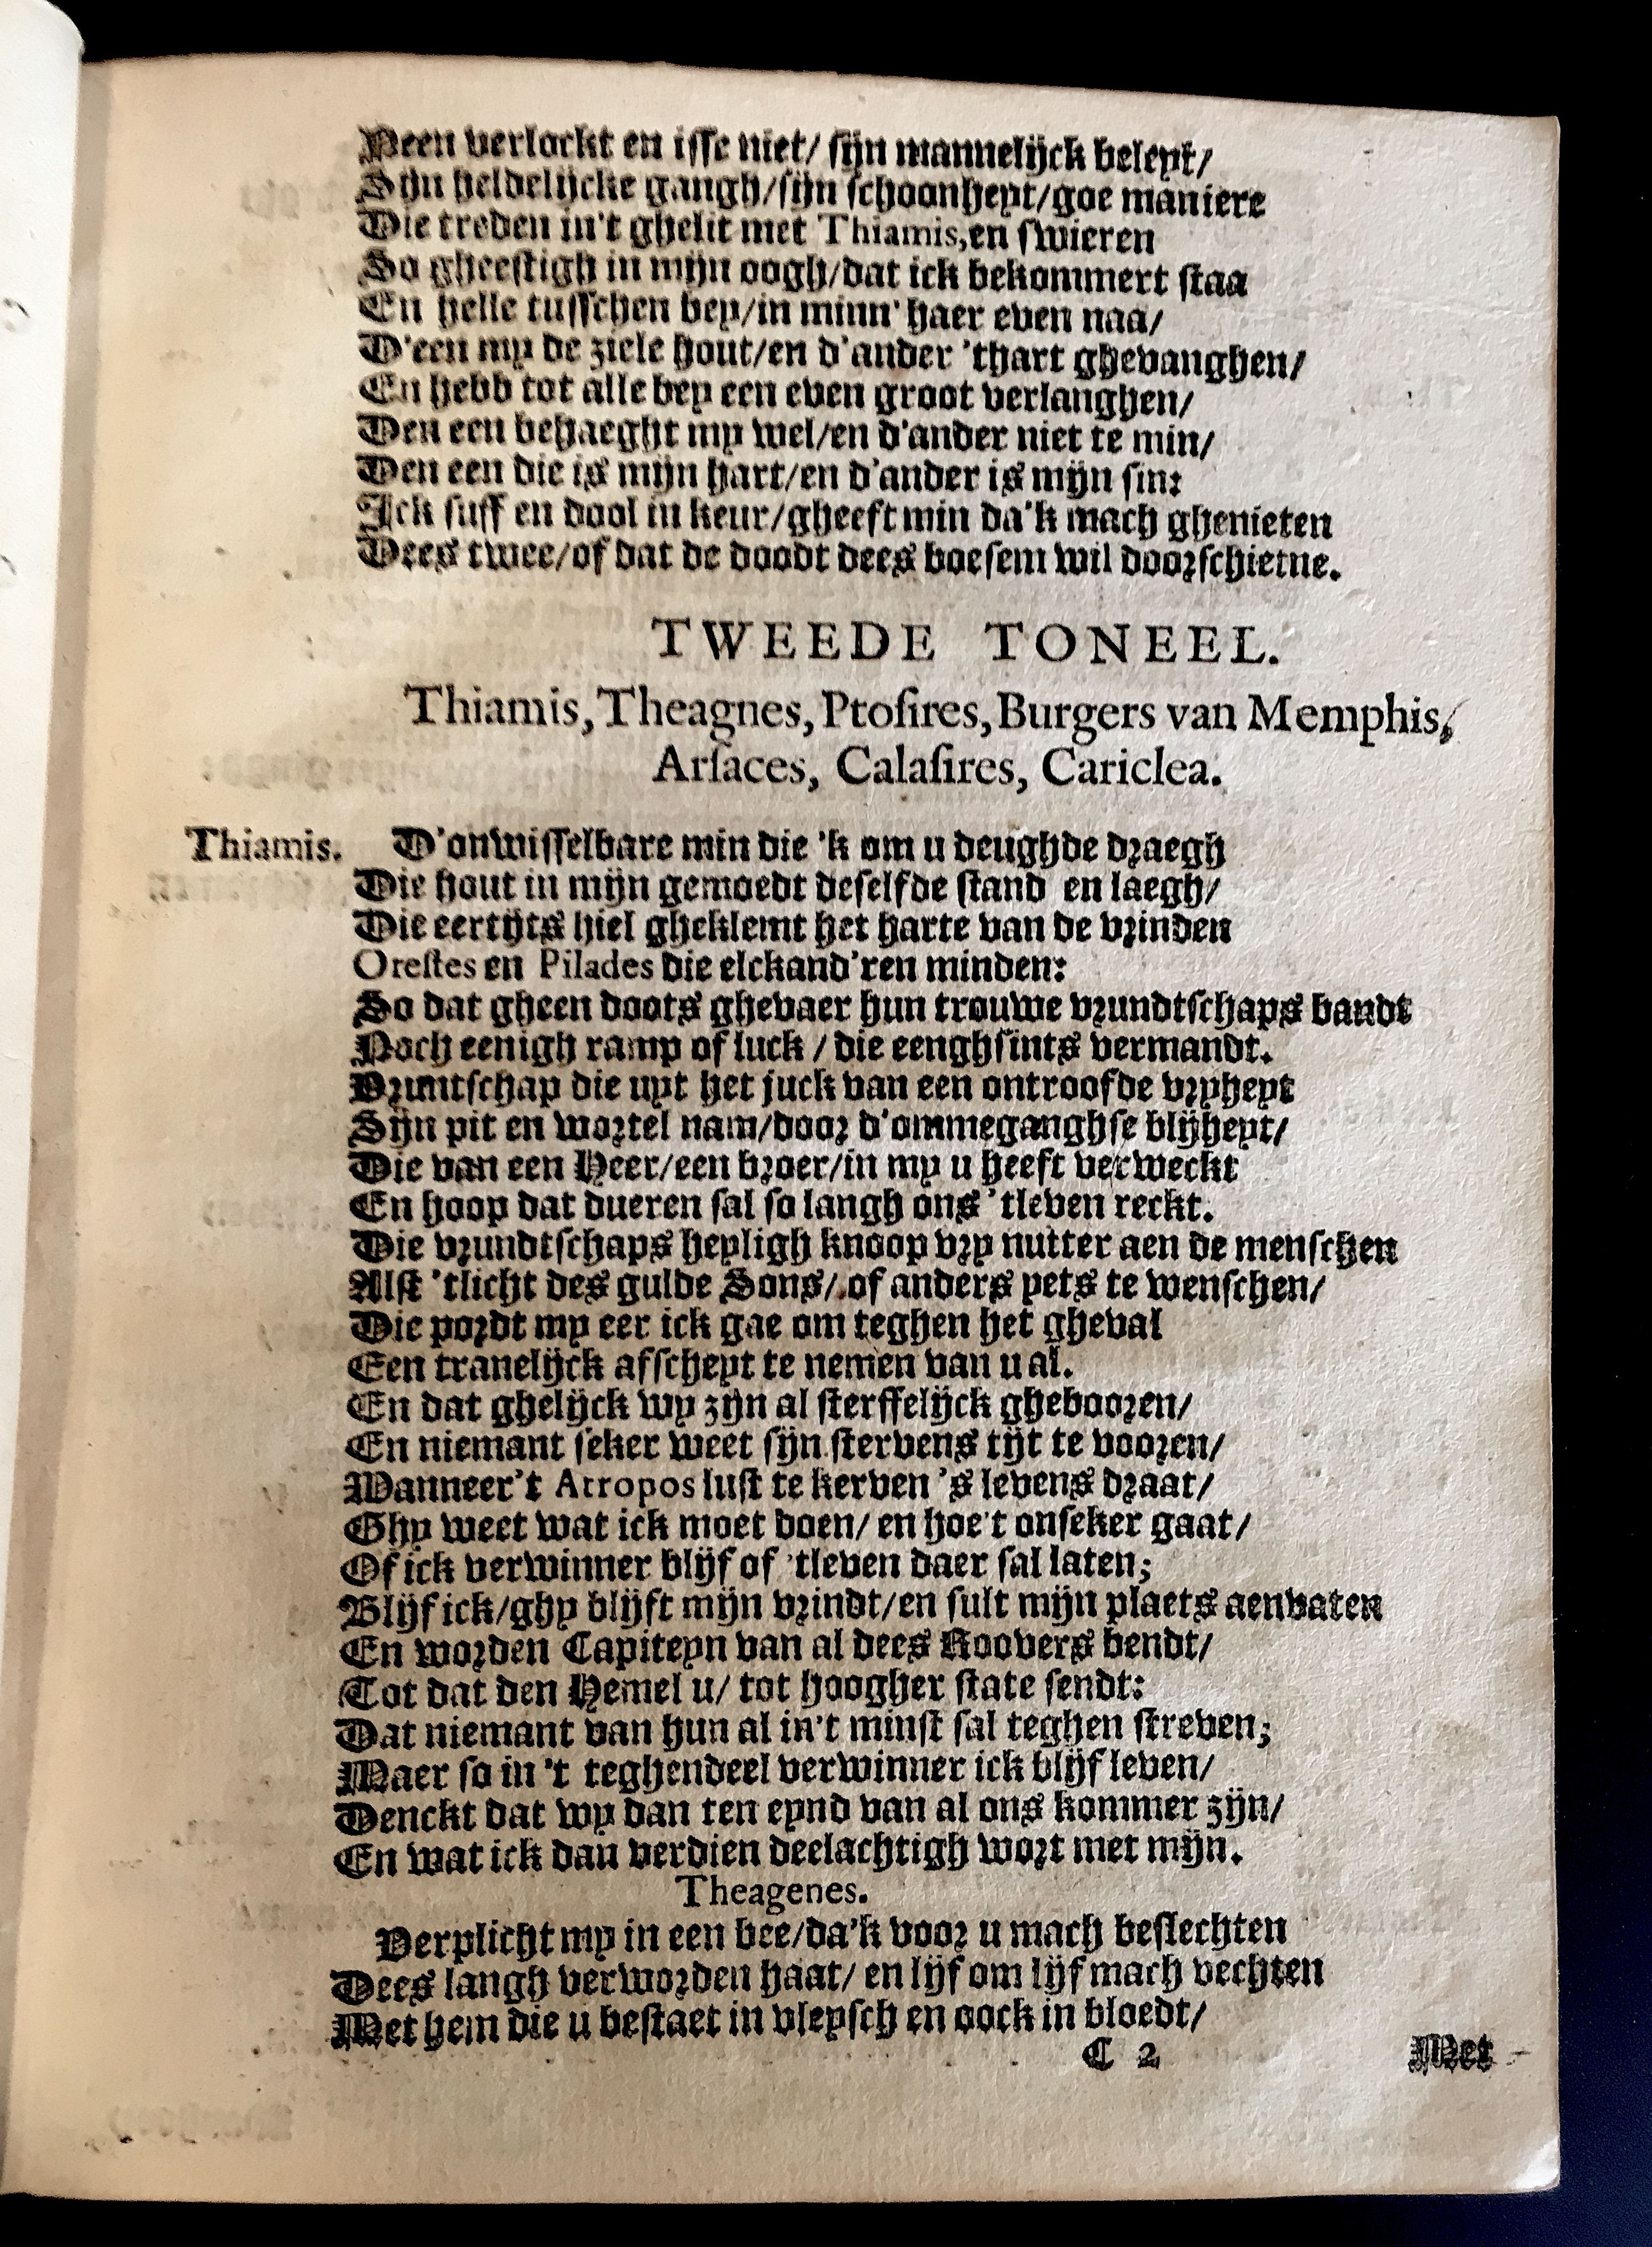 Neen verlockt en isse niet/ sijn mannelijck beleyt/
Sijn heldelijcke gangh/sijn schoonheyt/goe maniere
Die treden in't ghelit met Thiamis,en swieren
So gheestigh in mijn oogh/dat ick bekommert staa
En helle tusschen bey/in minn' haer even naa/
D'een my de ziele hout/en d'ander 'thart ghevanghen/
En hebb tot alle bey een even groot verlanghen/
Den een behaeght my wel/en d'ander niet te min/
Den een die is mijn hart/en d'ander is mijn sin:
Ick suff en dool in keur/gheeft min da'k mach ghenieten
Dees twee/of dat de doodt dees boesem wil doorschietne.
TWEEDE TONEEL.
Thiamis, Theagnes, Ptosires, Burgers van Memphis,
Arsaces, Calasires, Cariclea.
Thiamis. D'onwisselbare min die 'k om u deughde draegh
Die hout in mijn gemoedt deselfde stand en laegh/
Die eertijts hiel gheklemt het harte van de vrinden
Orestes en Pilades die elckand'ren minden:
So dat gheen doots ghevaer hun trouwe vrundtschaps bandt
Noch eenigh ramp of luck / die eenghsints vermandt.
Vruntschap die uyt het juck van een ontroofde vryheyt
Sijn pit en wortel nam/door d'ommeganghse blijheyt/
Die van een Heer/een broer/in my u heeft verweckt
En hoop dat dueren sal so langh ons 'tleven reckt.
Die vrundtschaps heyligh knoop vry nutter aen de menschen
Alst 'tlicht des gulde Sons/ of anders yets te wenschen/
Die pordt my eer ick gae om teghen het gheval
Een tranelijck afscheyt te nemen van u al.
En dat ghelijck wy zijn al sterffelijck ghebooren/
En niemant seker weet sijn stervens tijt te vooren/
Wanneer't Atropos lust te kerven 's levens draat/
Ghy weet wat ick moet doen/ en hoe't onseker gaat/
Of ick verwinner blijf of 'tleven daer sal laten;
Blijf ick/ghy blijft mijn vrindt/en sult mijn plaets aenvaten
En worden Capiteyn van al dees Roovers bendt/
Tot dat den Hemel u/ tot hoogher state sendt:
Dat niemant van hun al in't minst sal teghen streven;
Maer so in 't teghendeel verwinner ick blijf leven/
Denckt dat wy dan ten eynd van al ons kommer zijn/
En wat ick dan verdien deelachtigh wort met mijn.
Theagenes.
Verplicht my in een bee/da'k voor u mach beslechten
Dees langh verworden haat/ en lijf om lijf mach vechten
Met hem die u bestaet in vleysch en oock in bloedt/
C 2 Met